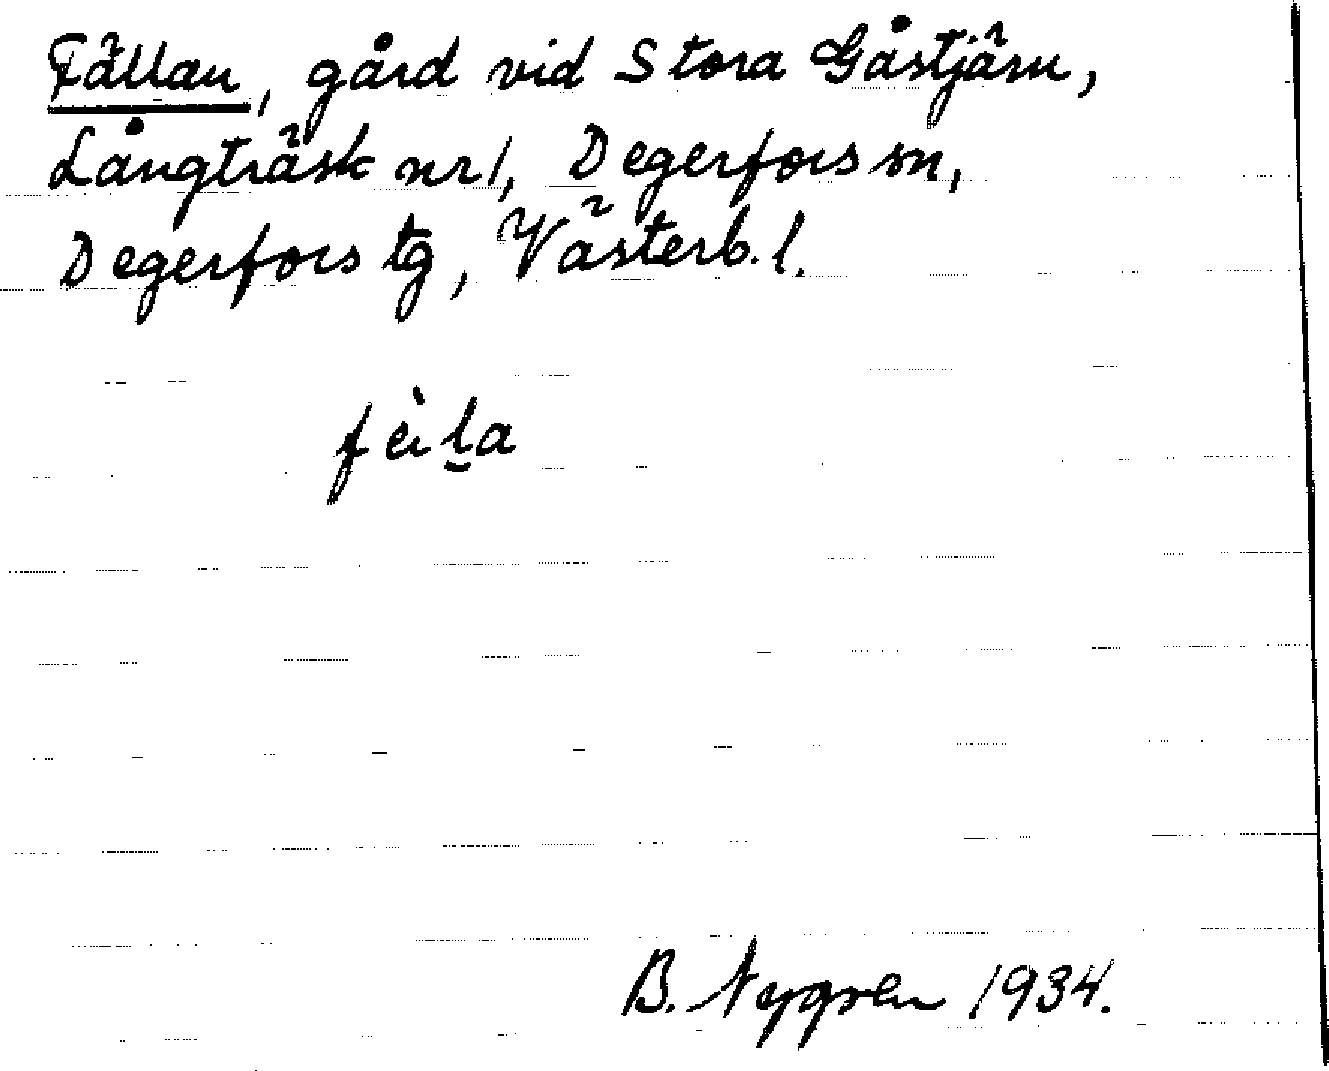 Fällan, gård vid Stora Gåstjärn,
Långträsk nr 1, Degerfors sn,
Degerfors tg, Västerb. l.
fèil̯a
B. Nygren 1934.